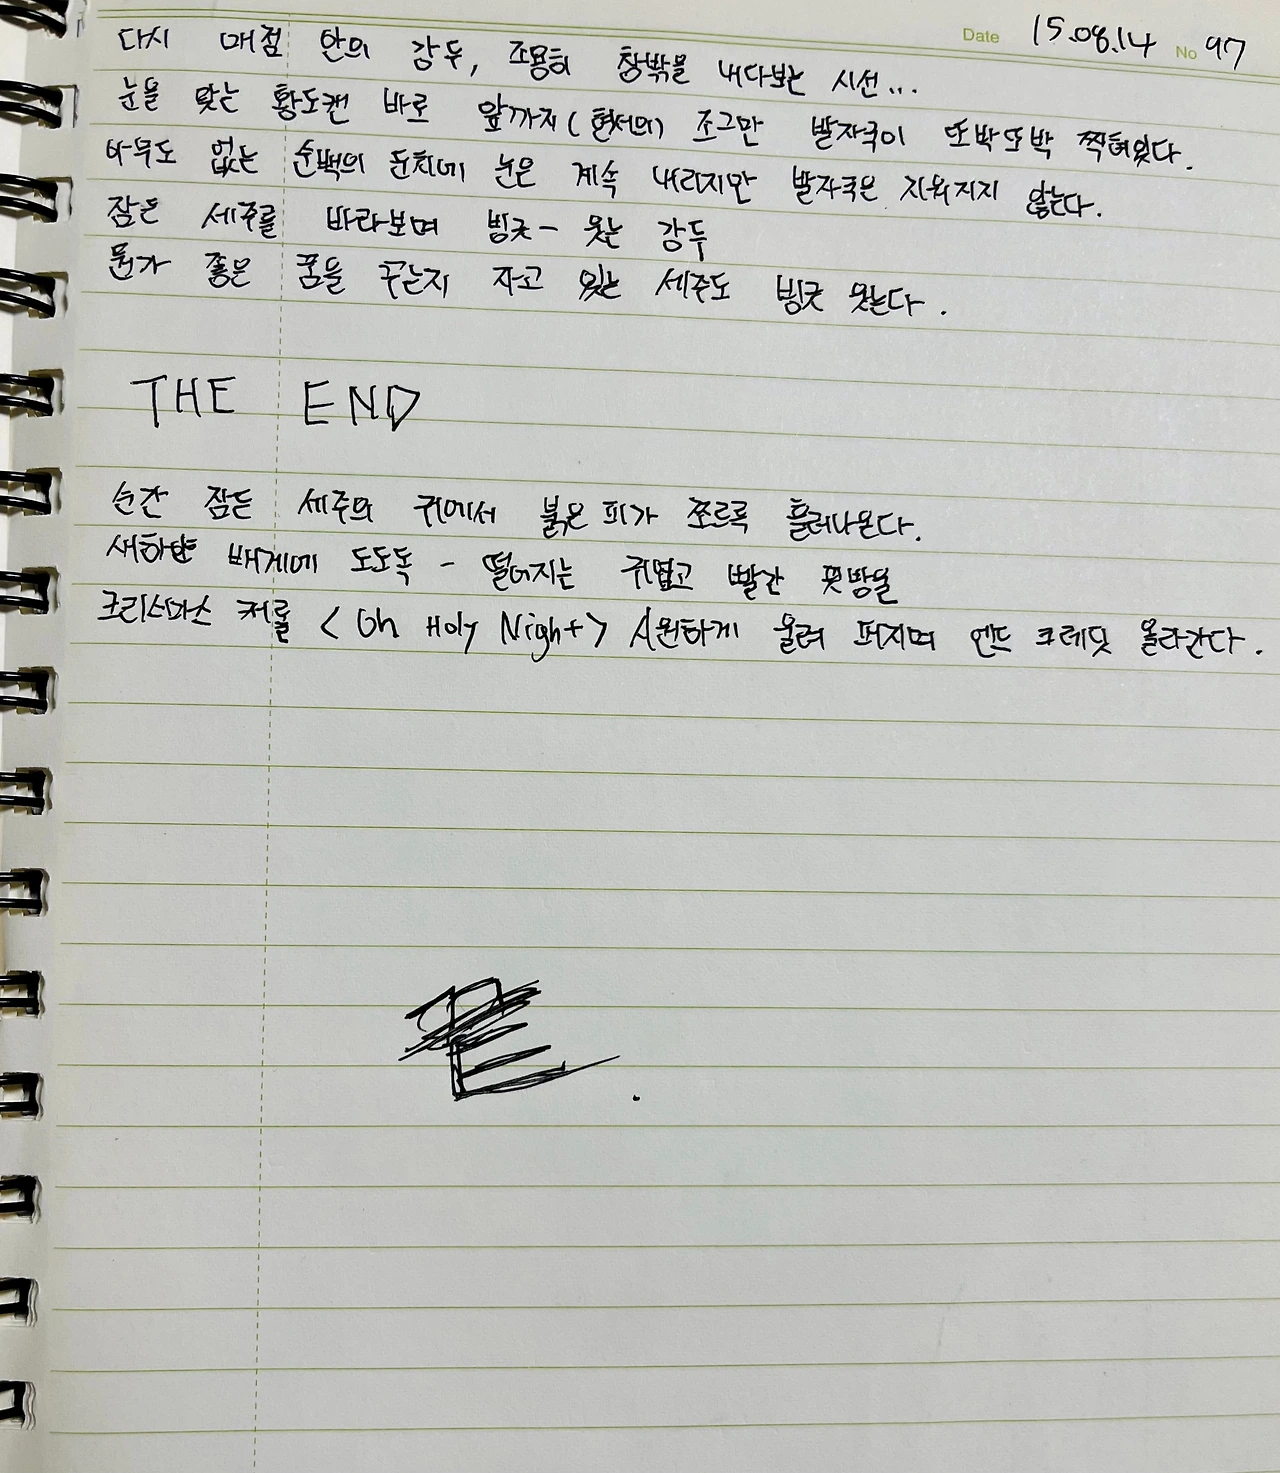 Date 15.08.14 No 97
다시 매점 안의 강두, 조용히 창밖을 내다보는 시선...
눈을 맞는 황도캔 바로 앞까지 (현서의) 조그만 발자국이 또박또박 찍혀있다.
아무도 없는 순백의 둔치에 눈은 계속 내리지만 발자국은 지워지지 않는다.
잠든 세주를 바라보며 빙긋- 웃는 강두
뭔가 좋은 꿈을 꾸는지 자고 있는 세주도 빙긋 웃는다.
THE END
순간 잠든 세주의 귀에서 붉은 피가 쪼르륵 흘러나온다.
새하얀 베게에 도도독 - 떨어지는 귀엽고 빨간 핏방울
크리스마스 캐롤 <Oh Holy Night> 시원하게 울려 퍼지며 엔드 크레딧 올라간다.